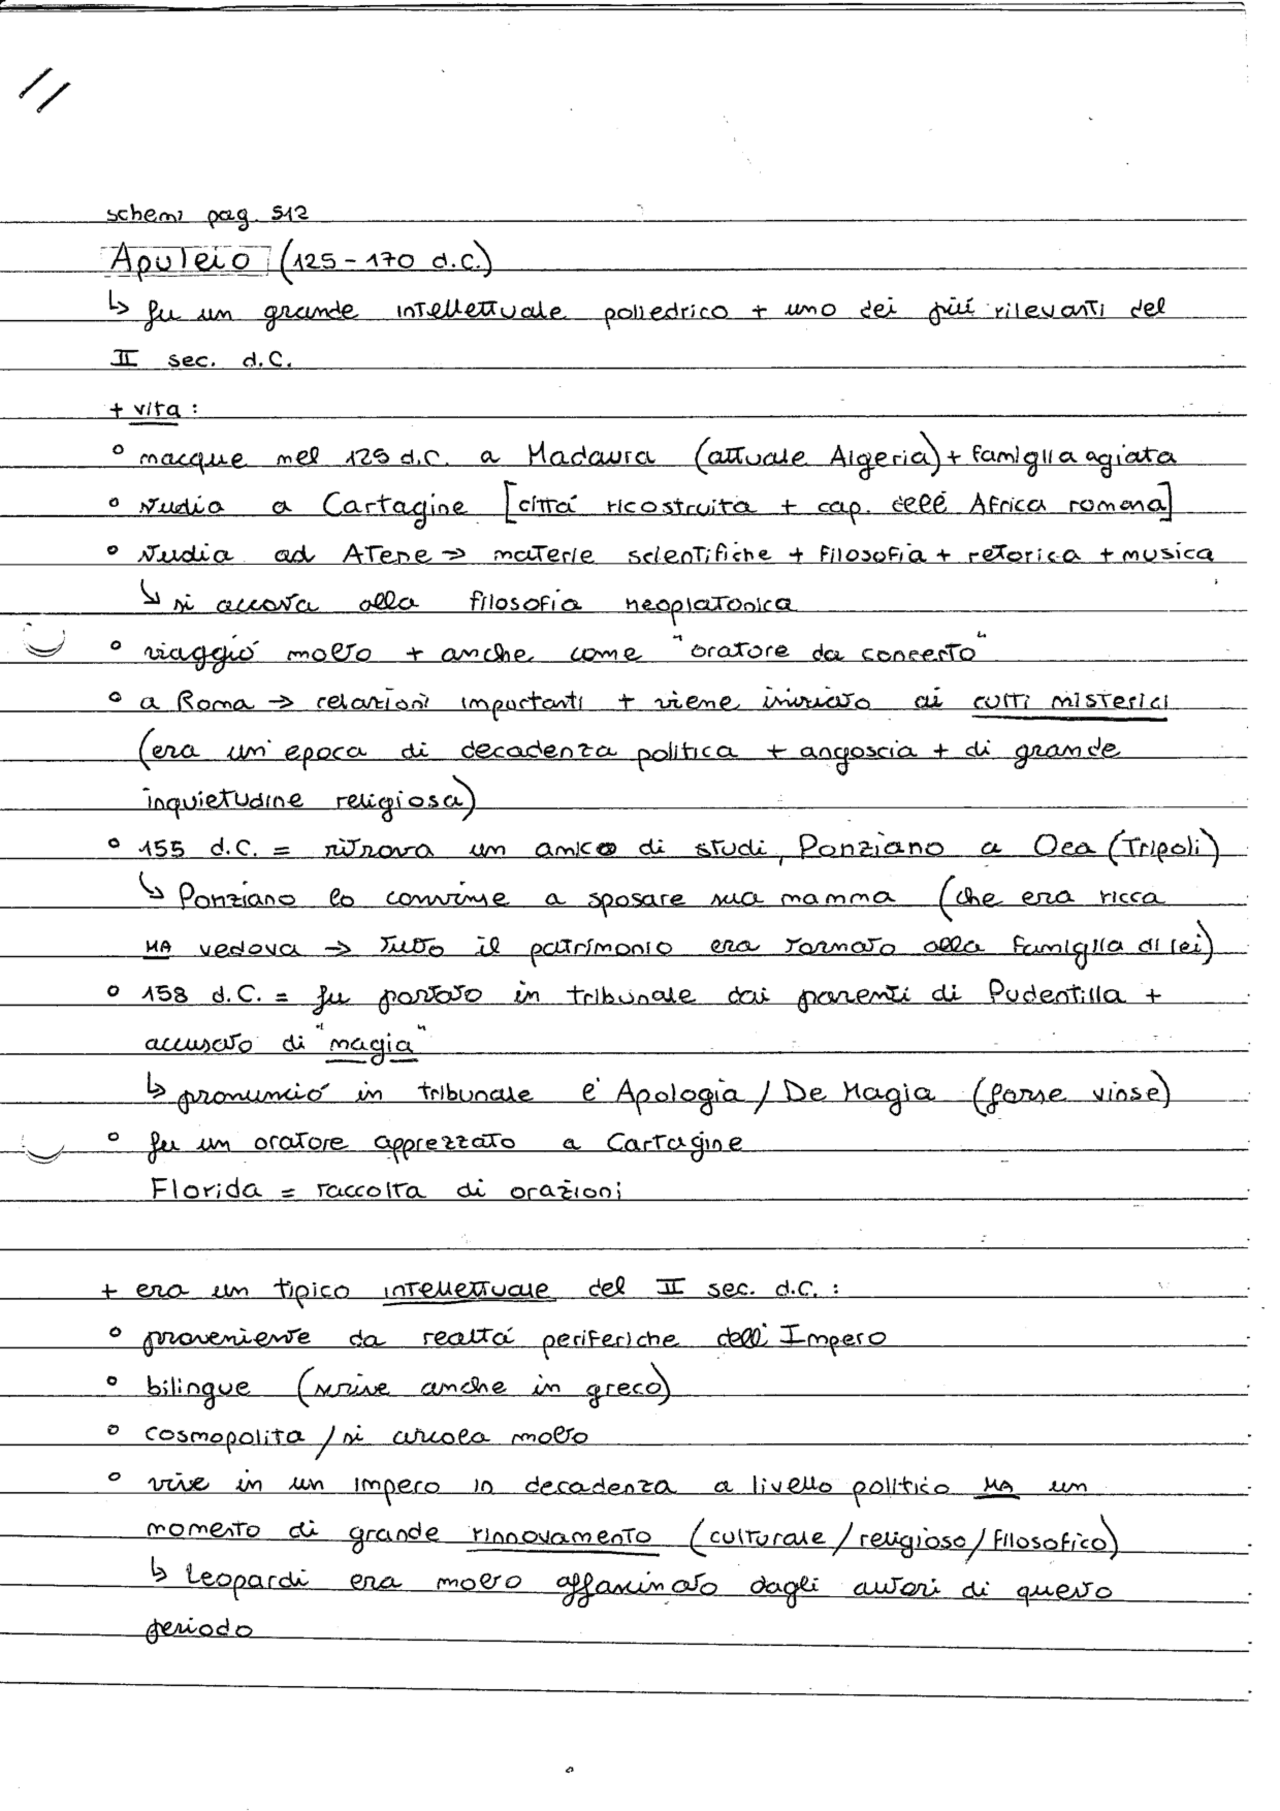 schemi pag. 512
Apuleio (125-170 d.C.)
↳ fu un grande intellettuale poliedrico + uno dei più rilevanti del
II sec. d.C.
+ vita:
° nacque nel 125 d.C. a Madaura (attuale Algeria) + famiglia agiata
° studia a Cartagine [città ricostruita + cap. dell' Africa romana]
° studia ad Atene => materie scientifiche + filosofia + retorica + musica
↳ si accosta alla filosofia neoplatonica
° viaggiò molto + anche come "oratore da concerto"
° a Roma → relazioni importanti + viene iniziato ai culti misterici
(era un'epoca di decadenza politica + angoscia + di grande
inquietudine religiosa)
° 155 d.C. = ritrova un amico di studi, Ponziano a Oea (Tripoli)
↳ Ponziano lo convinse a sposare sua mamma (che era ricca
MA vedova → tutto il patrimonio era tornato alla famiglia di lei)
° 158 d.C. = fu portato in tribunale dai parenti di Pudentilla +
accusato di "magia"
↳ pronunciò in tribunale l' Apologia / De Magia (forse vinse)
° fu un oratore apprezzato a Cartagine
Florida = raccolta di orazioni
+ era un tipico intellettuale del II sec. d.C.:
° proveniente da realtà periferiche dell' Impero
° bilingue (scrive anche in greco)
° cosmopolita / si circola molto
° vive in un impero in decadenza a livello politico MA un
momento di grande rinnovamento (culturale / religioso / filosofico)
↳ Leopardi era molto affascinato dagli autori di questo
periodo